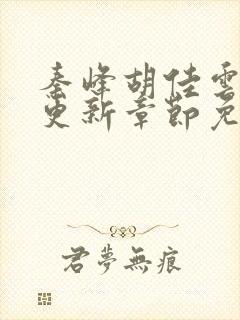 秦峰胡佳雲
更新章節免
君夢無痕